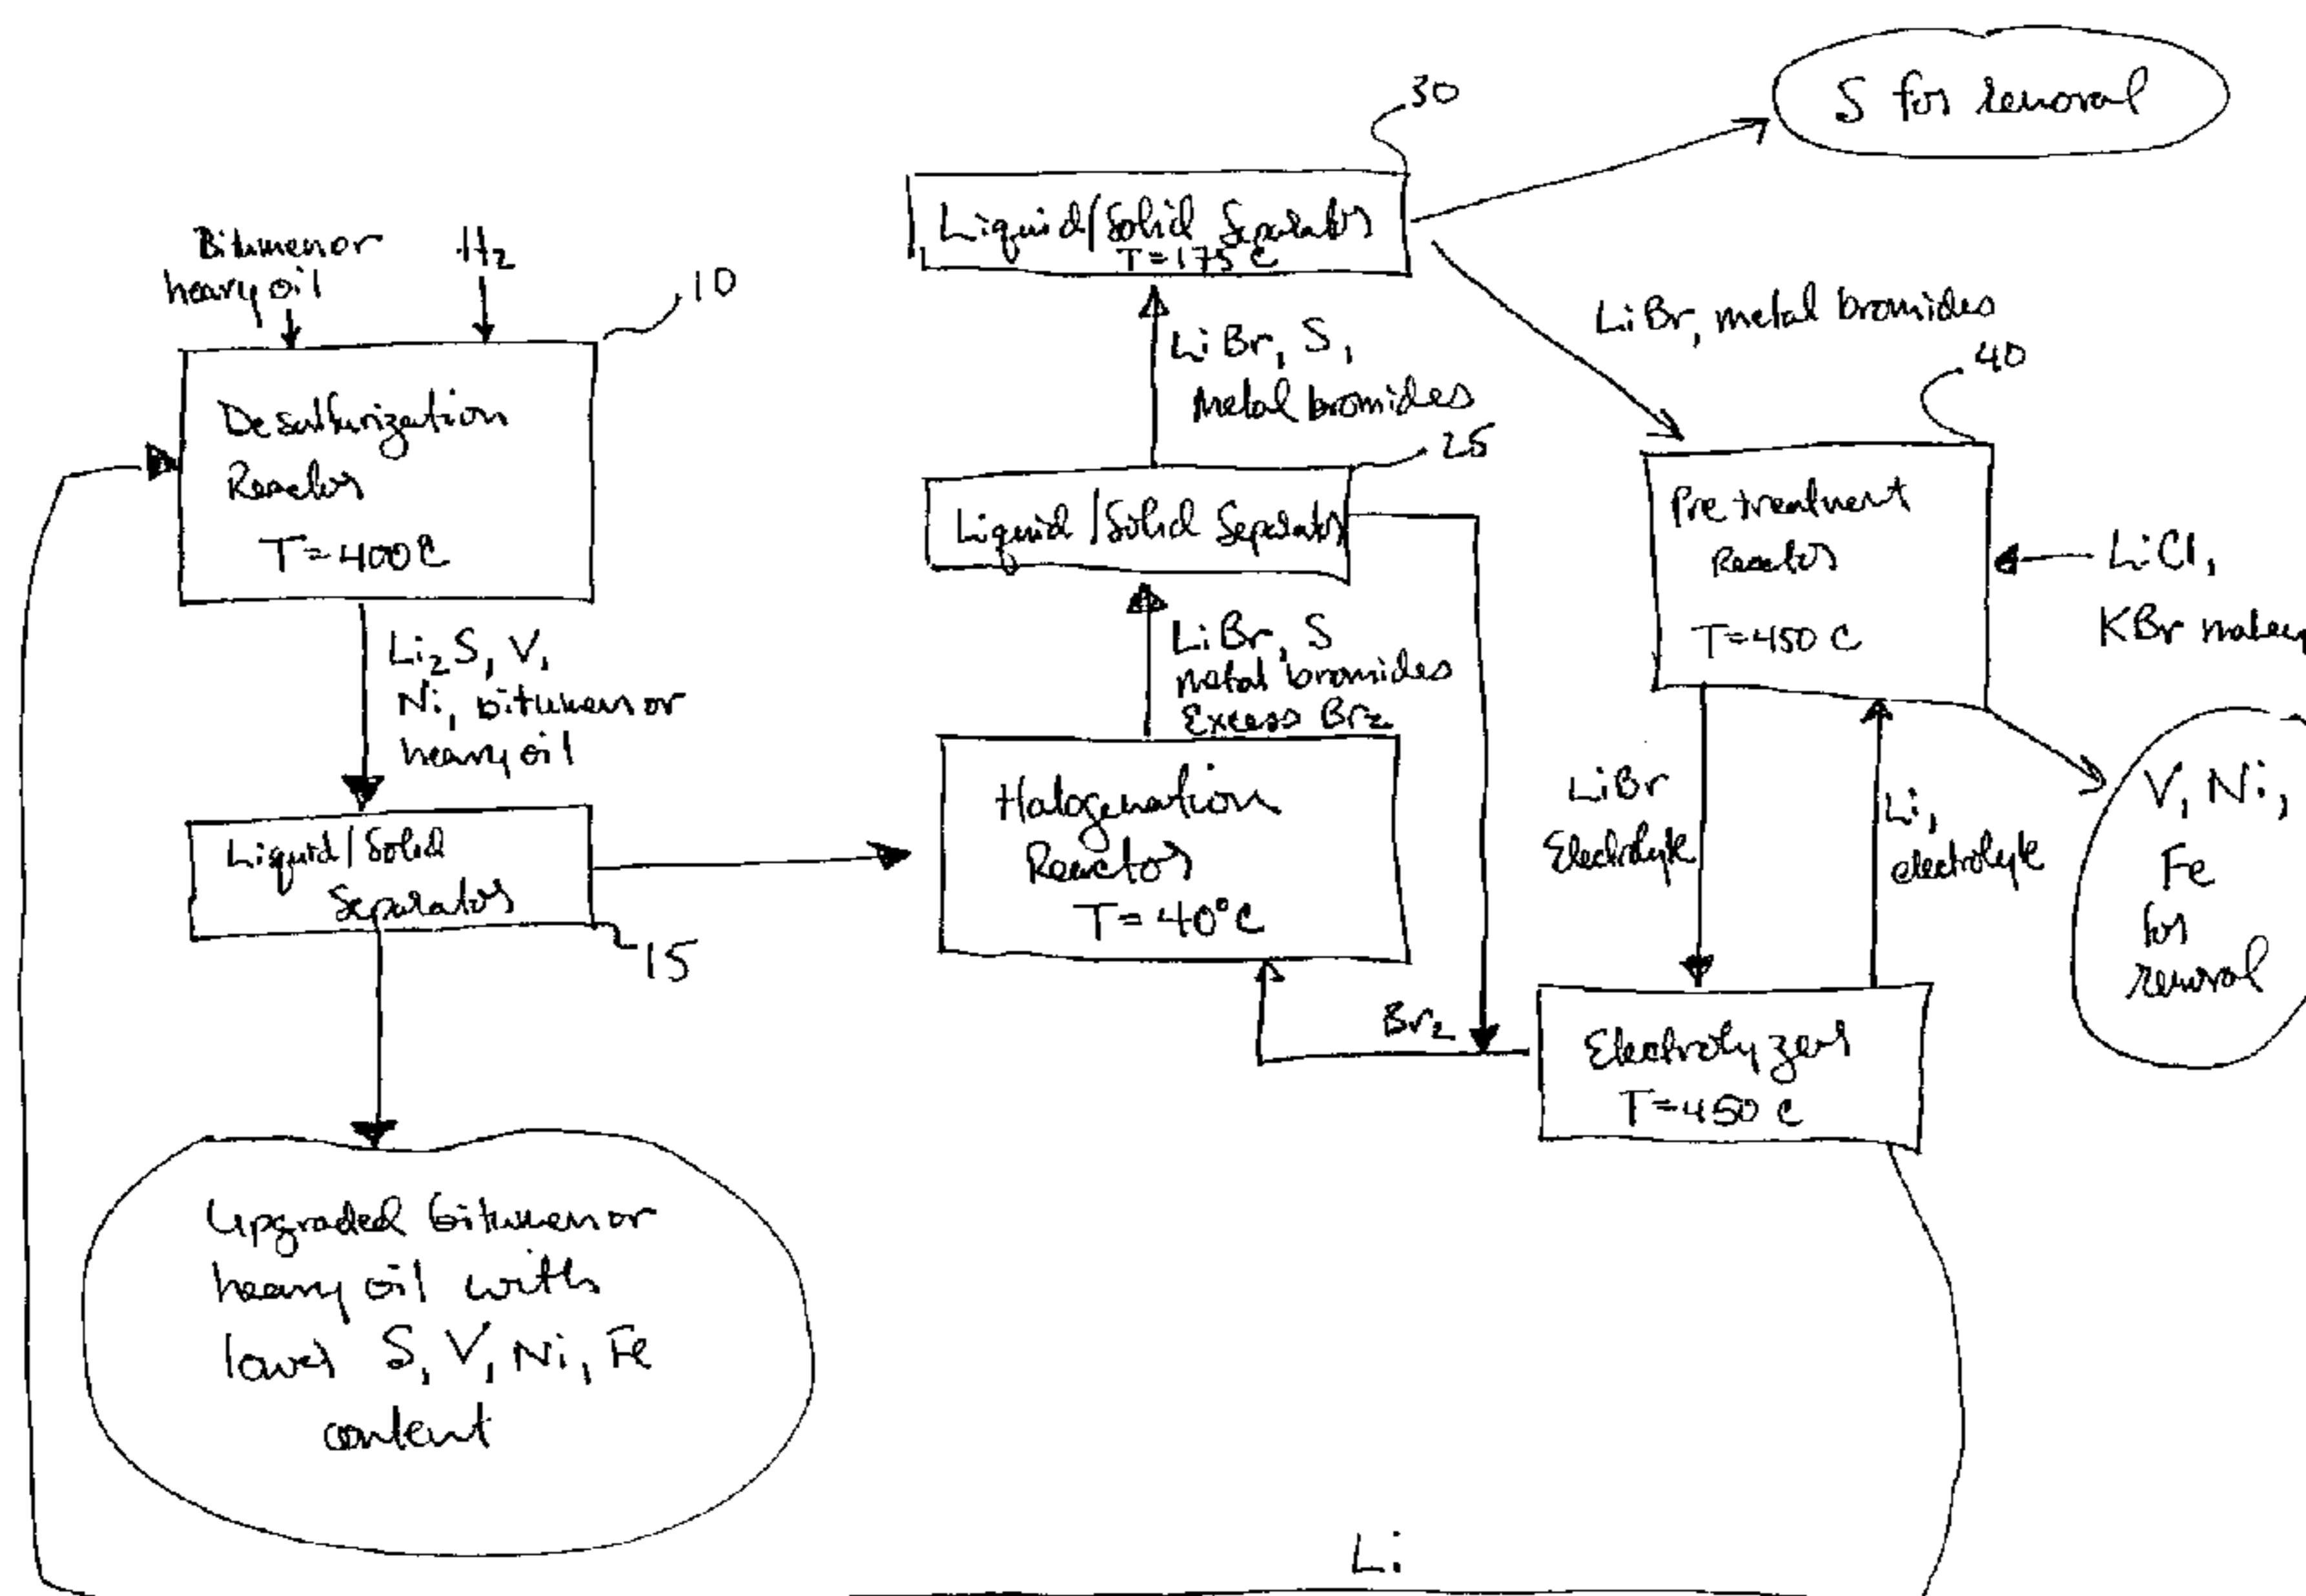 Bitumen or
heavy oil
H₂
10
Desulfurization
Reactor
T=400C
Li₂S, V,
Ni, bitumen or
heavy oil
Liquid/Solid
Separator
15
Upgraded bitumen or
heavy oil with
lower S, V, Ni, Fe
content
30
Liquid/Solid Separator
T=175 C
S for removal
LiBr, S,
Metal bromides
25
Liquid/Solid Separator
LiBr, S
metal bromides
Excess Br₂
Halogenation
Reactor
T=40°C
Br₂
LiBr, metal bromides
40
Pretreatment
Reactor
T=450 C
LiCl,
KBr
LiBr
Electrolyte
Li,
electrolyte
V, Ni,
Fe
for
removal
Electrolyzer
T=450 C
Li